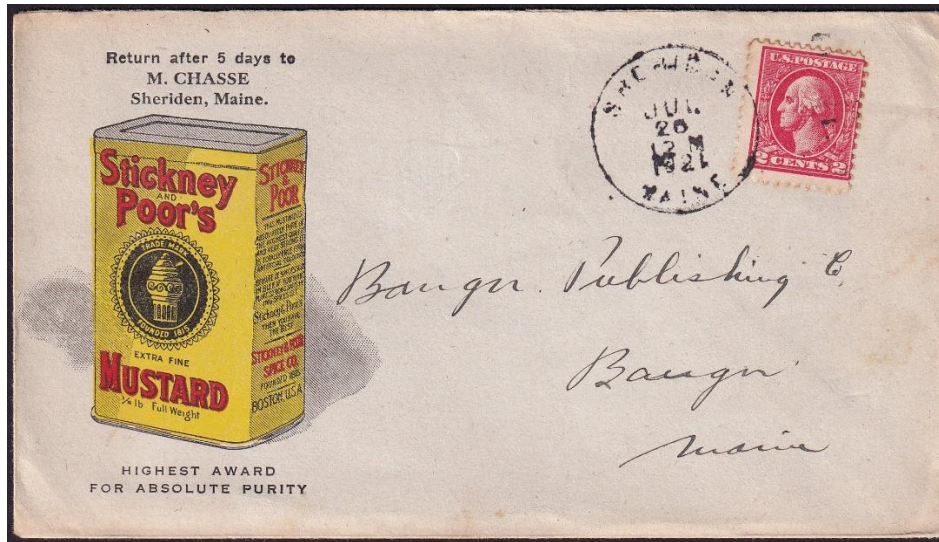 Return after 5 days to
M. CHASSE
Sheriden, Maine.
Stickney
AND
Poor's
TRADE MARK
FOUNDED 1815
EXTRA FINE
MUSTARD
¼ lb Full Weight
STICKNEY
&
POOR
Stickney & Poor's
THEN YOU HAVE
THE BEST
STICKNEY & POOR
SPICE CO.
FOUNDED 1815
BOSTON, U.S.A.
HIGHEST AWARD
FOR ABSOLUTE PURITY
JUL
26
12 M
1921
MAINE
U.S. POSTAGE
2 CENTS 2
Bangor Publishing Co
Bangor
Maine